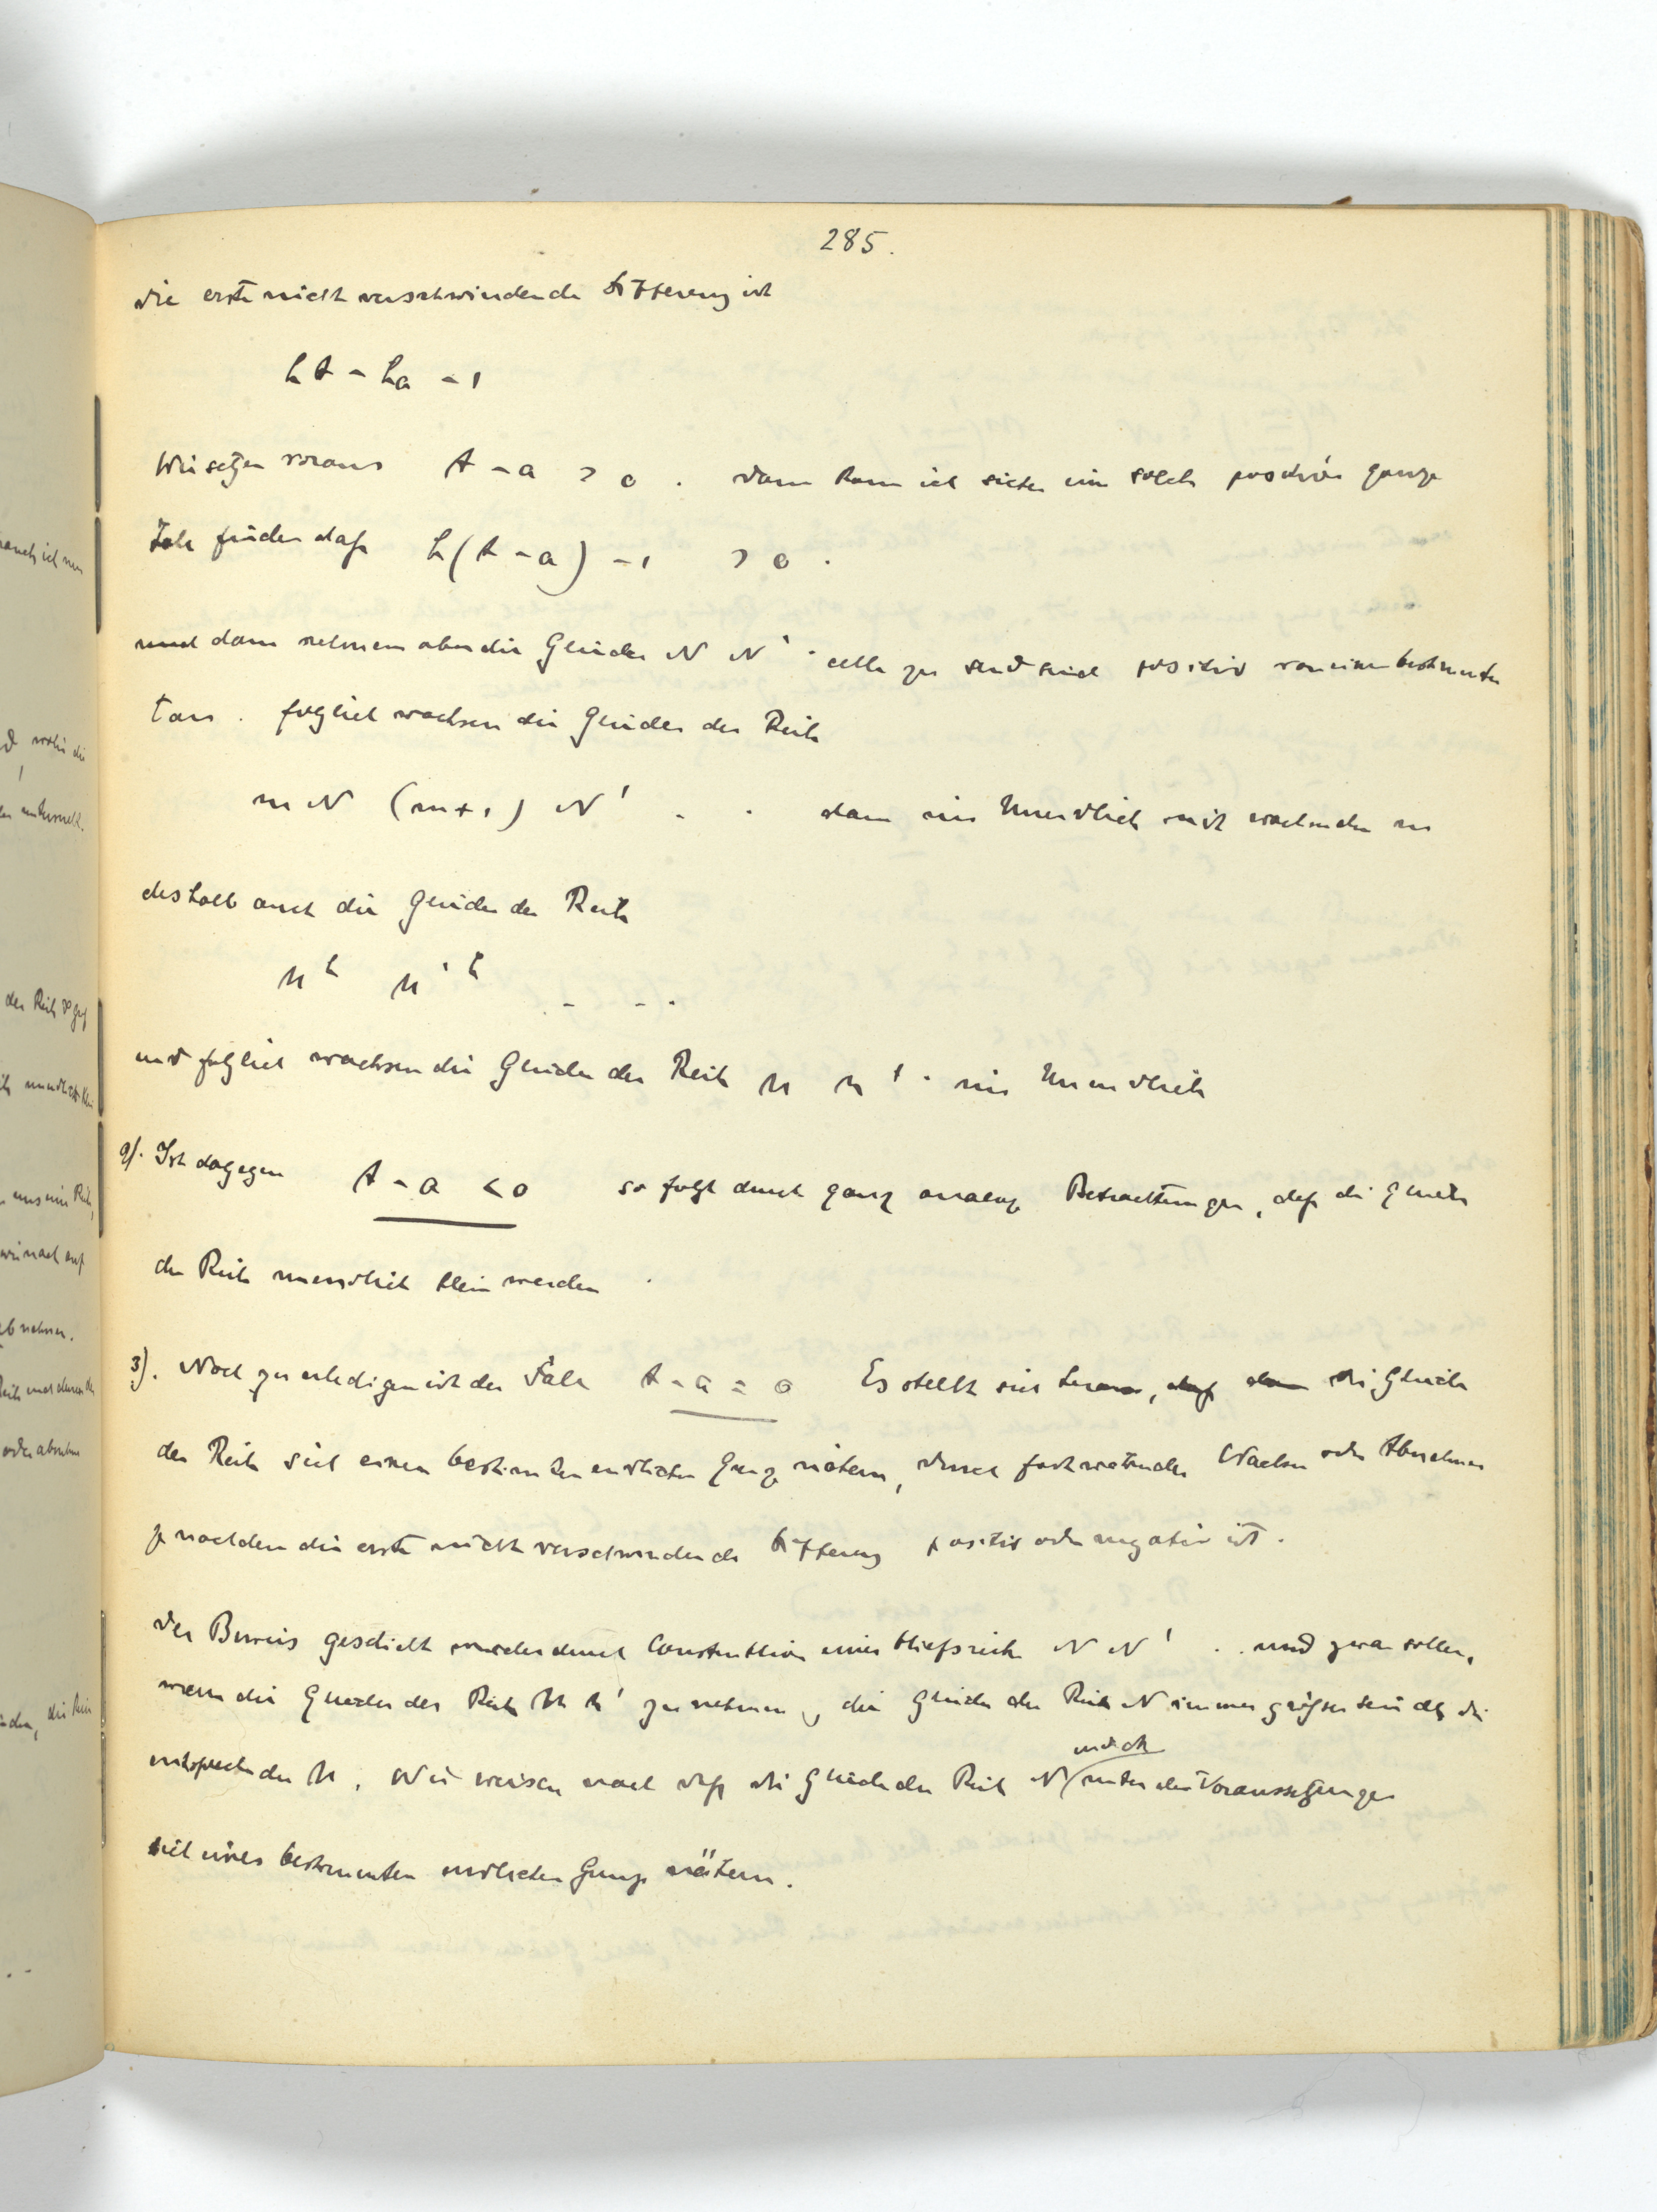 285.
die erste nicht verschwindende Differenz ist
hA - ha - 1
Wir setzen voraus A - a > 0 . dann kann ich sicher eine solche positive ganze
Zahl finden daß h(A - a) - 1 > 0 .
und dann nehmen aber die Glieder N N' . alle zu und sind positiv von einem bestimmten
an . folglich wachsen die Glieder der Reihe
m N (m+1) N' . . dann ins Unendliche mit wachsendem m
deshalb auch die Glieder der Reihe
n^h n'^h - - .
und folglich wachsen die Glieder der Reihe n n' . ins Unendliche
2). Ist dagegen A - a < 0 so folgt durch ganz analoge Betrachtungen, daß die Glieder
der Reihe unendlich klein werden .
3). Noch zu erledigen ist der Fall A - a = 0 Es stellt sich heraus, daß die Glieder
der Reihe sich einer bestimmten endlichen Grenze nähern, durch fortwährendes Wachsen oder Abnehmen
je nachdem die erste nicht verschwindende Differenz positiv oder negativ ist .
Der Beweis geschieht wieder durch Construktion einer Hilfsreihe N N' . . und zwar sollen,
wenn die Glieder der Reihe n n' zunehmen, die Glieder der Reihe N immer größer sein als die
entsprechenden n. Wir weisen nach daß die Glieder der Reihe N unter den Voraussetzungen
sich einer bestimmten endlichen Grenze nähern.